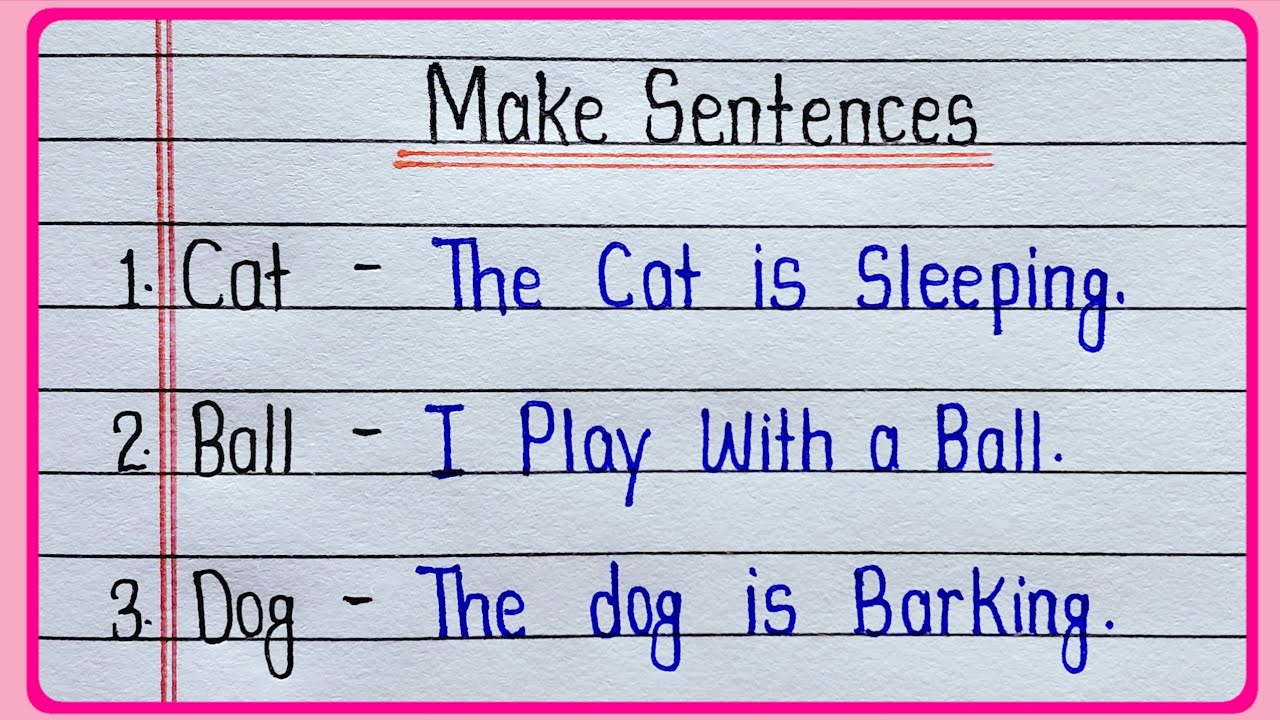 Make Sentences
1. Cat - The Cat is Sleeping.
2. Ball - I Play With a Ball.
3. Dog - The dog is Barking.